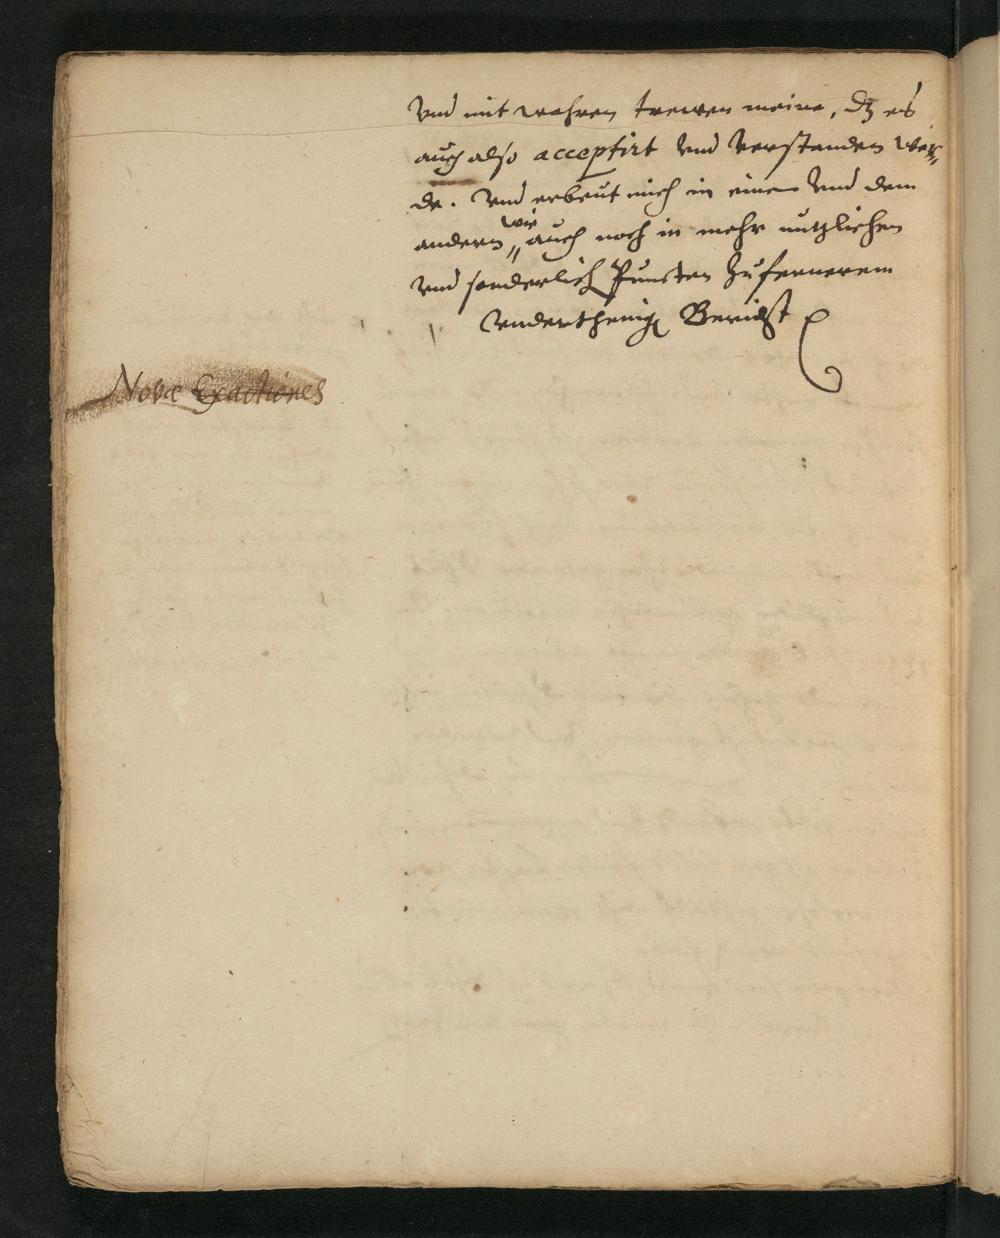 Vnd mit wahren trewen meine, dz es
auch also acceptirt vnd verstanden wer„
de. Vnd erbeut mich in einem vnd dem
andern „ wie auch noch in mehr nutzlichen
vnd sonderlich Puncten zu fernerem
vnderthenig Bericht
Novæ Exactiones